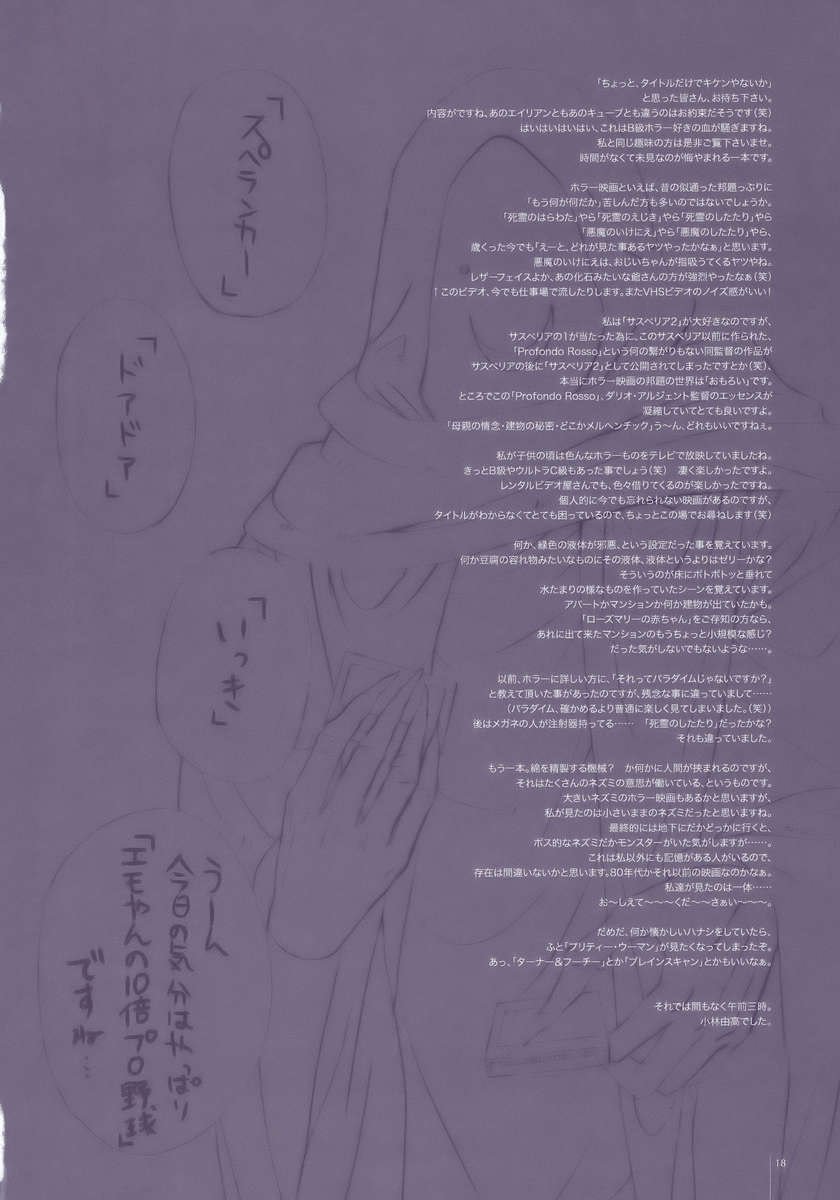 「ちょっと、タイトルだけでキケンやないか」
と思った皆さん、お待ち下さい。
内容がですね、あのエイリアンともあのキューブとも違うのはお約束だそうです（笑）
はいはいはいはい、これはB級ホラー好きの血が騒ぎますね。
私と同じ趣味の方は是非ご覧下さいませ。
時間がなくて未見なのが悔やまれる一本です。
ホラー映画といえば、昔の似通った邦題っぷりに
「もう何が何だか」苦しんだ方も多いのではないでしょうか。
「死霊のはらわた」やら「死霊のえじき」やら「死霊のしたたり」やら
「悪魔のいけにえ」やら「悪魔のしたたり」やら、
歳くった今でも「えーと、どれが見た事あるヤツやったかなぁ」と思います。
悪魔のいけにえは、おじいちゃんが指吸うてくるヤツやね。
レザーフェイスよか、あの化石みたいな爺さんの方が強烈やったなぁ（笑）
↑このビデオ、今でも仕事場で流したりします。またVHSビデオのノイズ感がいい！
私は「サスペリア2」が大好きなのですが、
サスペリアの1が当たった為に、このサスペリア以前に作られた、
「Profondo Rosso」という何の繋がりもない同監督の作品が
サスペリアの後に「サスペリア2」として公開されてしまったですとか（笑）、
本当にホラー映画の邦題の世界は「おもろい」です。
ところでこの「Profondo Rosso」、ダリオ・アルジェント監督のエッセンスが
凝縮していてとても良いですよ。
「母親の情念・建物の秘密・どこかメルヘンチック」う〜ん、どれもいいですねぇ。
私が子供の頃は色んなホラーものをテレビで放映していましたね。
きっとB級やウルトラC級もあった事でしょう（笑）　凄く楽しかったですよ。
レンタルビデオ屋さんでも、色々借りてくるのが楽しかったですね。
個人的に今でも忘れられない映画があるのですが、
タイトルがわからなくてとても困っているので、ちょっとこの場でお尋ねします（笑）
何か、緑色の液体が邪悪、という設定だった事を覚えています。
何か豆腐の容れ物みたいなものにその液体、液体というよりはゼリーかな？
そういうのが床にボトボトッと垂れて
水たまりの様なものを作っていたシーンを覚えています。
アパートかマンションか何か建物が出ていたかも。
「ローズマリーの赤ちゃん」をご存知の方なら、
あれに出て来たマンションのもうちょっと小規模な感じ？
だった気がしないでもないような……。
以前、ホラーに詳しい方に、「それってパラダイムじゃないですか？」
と教えて頂いた事があったのですが、残念な事に違っていまして……
（パラダイム、確かめるより普通に楽しく見てしまいました。（笑））
後はメガネの人が注射器持ってる……　「死霊のしたたり」だったかな？
それも違っていました。
もう一本。綿を精製する機械？　か何かに人間が挟まれるのですが、
それはたくさんのネズミの意思が働いている、というものです。
大きいネズミのホラー映画もあるかと思いますが、
私が見たのは小さいままのネズミだったと思いますね。
最終的には地下にだかどっかに行くと、
ボス的なネズミだかモンスターがいた気がしますが……。
これは私以外にも記憶がある人がいるので、
存在は間違いないかと思います。80年代かそれ以前の映画なのかなぁ。
私達が見たのは一体……
お〜しえて〜〜〜くだ〜〜さぁい〜〜〜〜。
だめだ、何か懐かしいハナシをしていたら、
ふと「プリティー・ウーマン」が見たくなってしまったぞ。
あっ、「ターナー&フーチー」とか「ブレインスキャン」とかもいいなぁ。
それでは間もなく午前三時。
小林由高でした。
「スペランカー」
「ドアドア」
「いっき」
うーん
今日の気分はやっぱり
「エモやんの10倍プロ野球」
ですね…
18